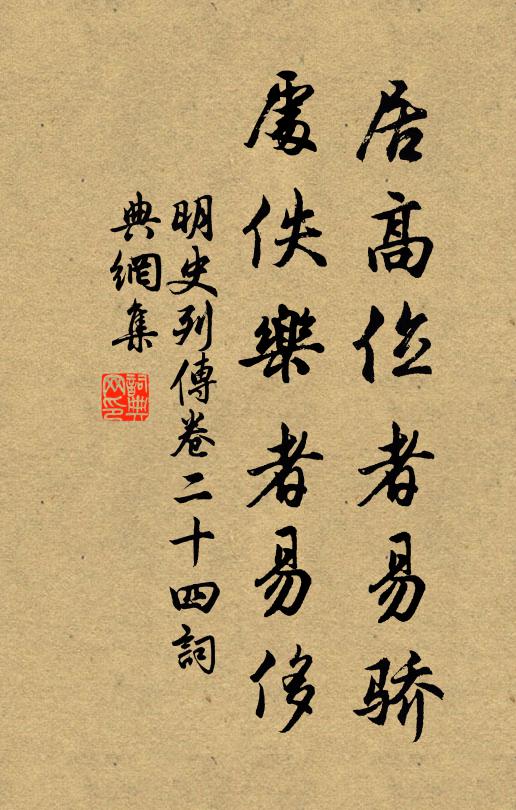 居高位者易骄
處佚樂者易侈
明史列傳卷二十四詞
典網集
詞典
网印